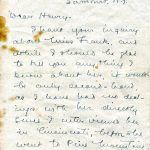 Summit, N.J.
Dear Henry:
I have your inquiry
about Miss Frank, and
while I should be glad
to tell you anything I
know about her, it would
be only second-hand,
as I have had no deal-
ings with her directly
since I interviewed her
in Cincinnati, before she
went to Pine Mountain